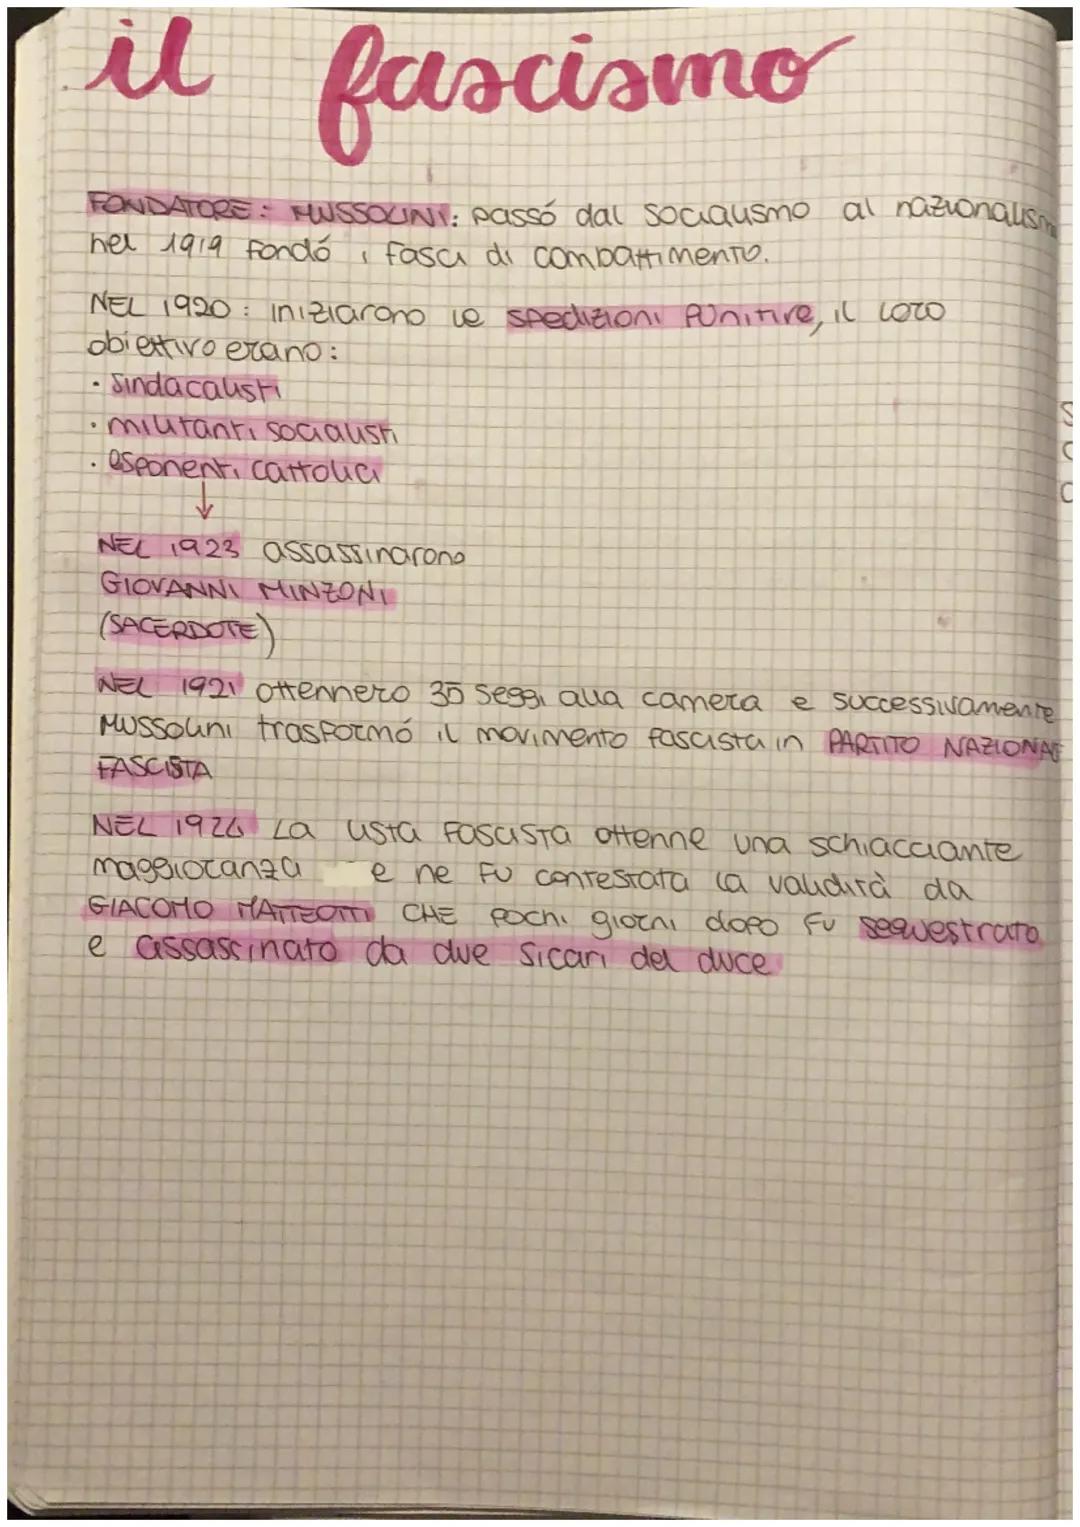 il fascismo
FONDATORE: MUSSOLINI: passó dal socialismo al nazionalism
nel 1919 fondó i fasci di combattimento.
NEL 1920: iniziarono le spedizioni punitive, il loro
obiettivo erano:
· sindacalisti
· militanti socialisti
· esponenti cattolici
↓
NEL 1923 assassinarono
GIOVANNI MINZONI
(SACERDOTE)
NEL 1921 ottennero 35 seggi alla camera e successivamente
Mussolini trasformó il movimento fascista in PARTITO NAZIONALE
FASCISTA
NEL 1924 la lista fascista ottenne una schiacciante
maggioranza e ne fu contestata la validità da
GIACOMO MATTEOTTI CHE pochi giorni dopo fu sequestrato
e assassinato da due sicari del duce